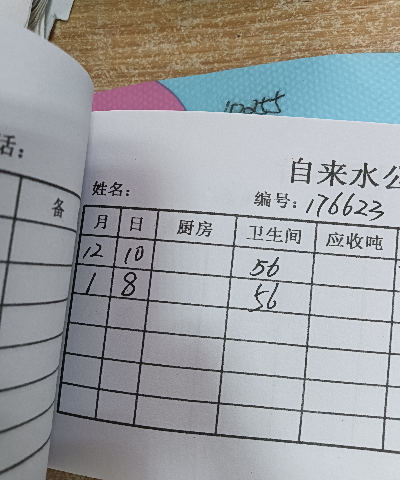 10255
话:
备
自来水公
姓名:
编号: 176623
月 日 厨房 卫生间 应收吨
12 10 56
1 8 56